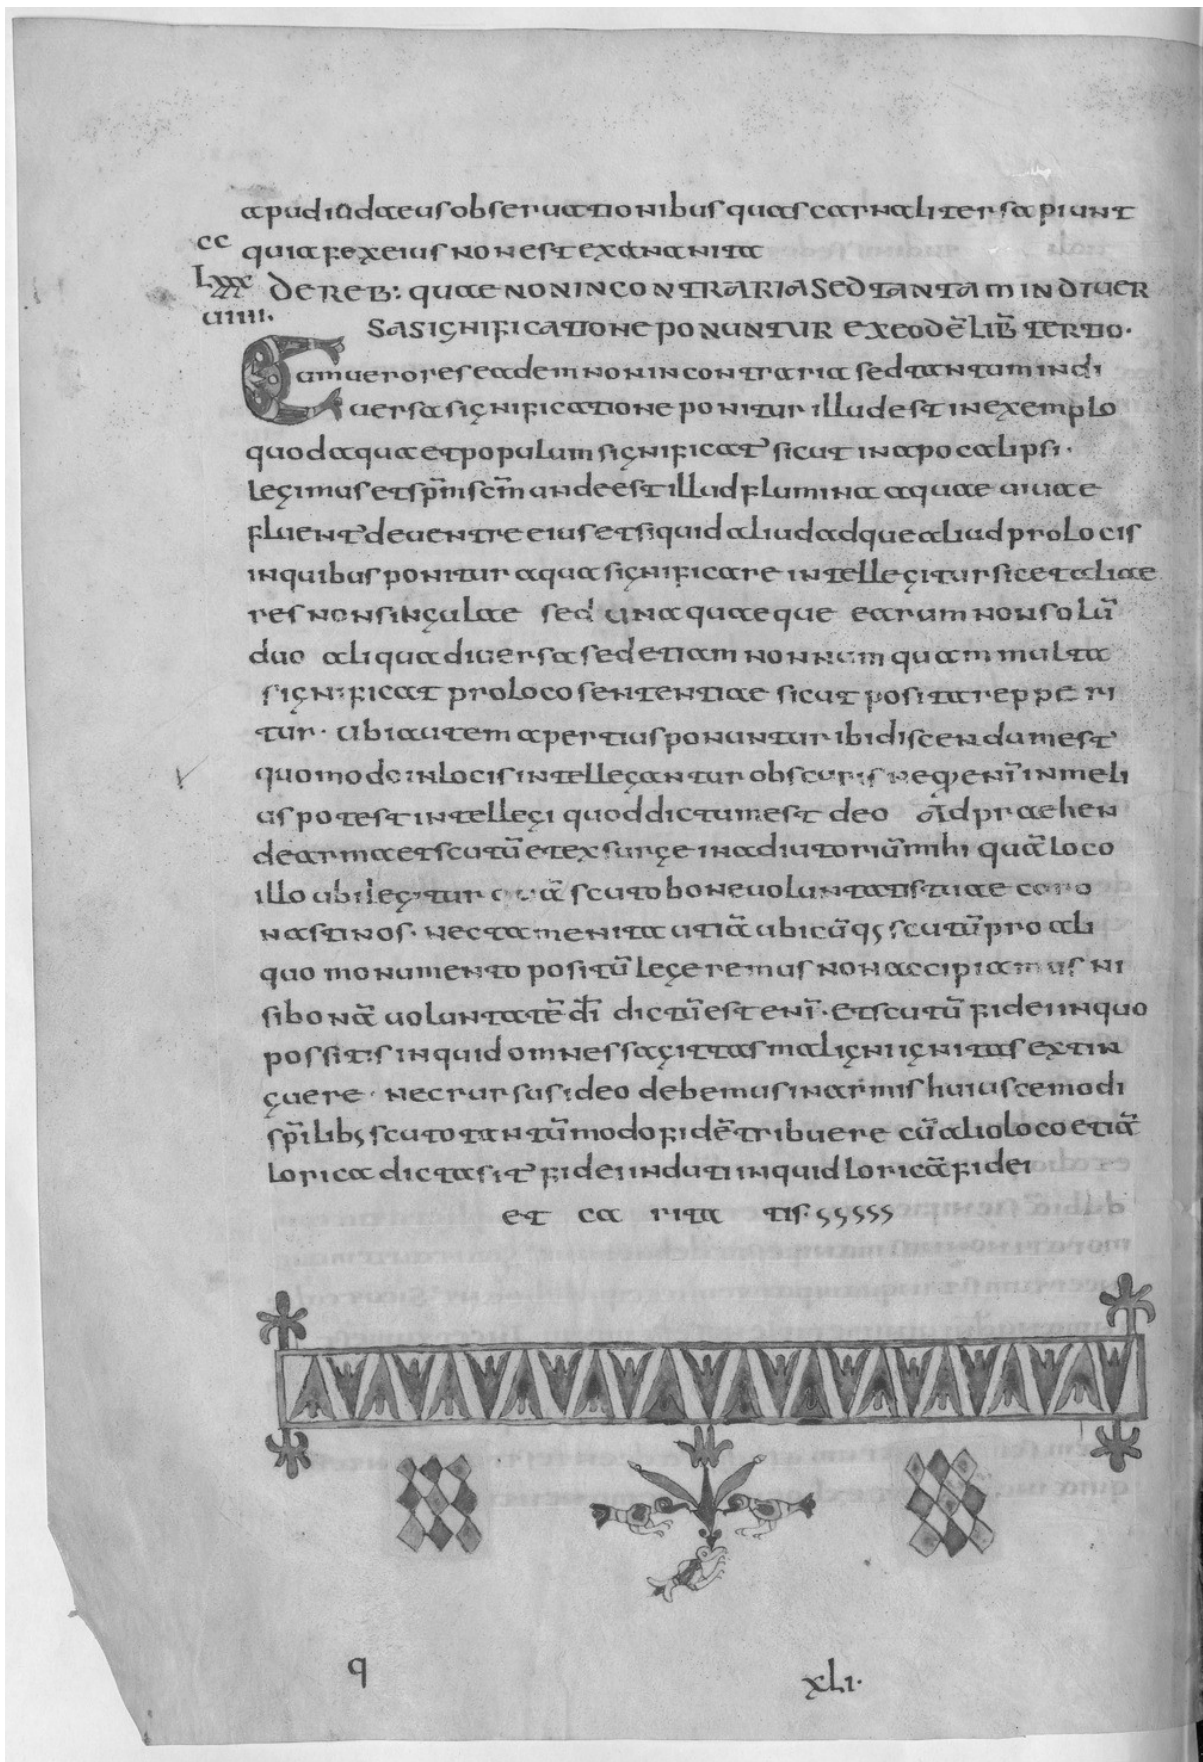 apud iudaeus obseruationibus quas carnaliter sapiunt
cc quia fex eius non est exananita
Lxxx DE REB: QUAE NON IN CONTRARIA SED TANTAM IN DIUER
uiiii. SA SIGNIFICATIONE PONUNTUR EX EODĒ LIB̄ TERTIO.
Cum uero res eadem non in contraria sed tantum in di
uersa significatione ponitur illud est in exemplo
quod aqua et populum significat sicut in apocalipsi.
legimus et sp̄m sc̄m unde est illud flumina aquae uiuae
fluent de uentre eius et si quid aliud adque aliud pro locis
in quibus ponitur aqua significare intellegitur sic et aliae
res non singulae sed una quaeque earum non solū
duo aliqua diuersa sed etiam non num quam multa
significat pro loco sententiae sicut posita repperi
tur. ubi autem apertius ponuntur ibi discendum est
quomodo in locis intellegantur obscuris neque enī in meli
us potest intellegi quod dictum est deo Adpraehen
de arma et scutū et exsurge in adiutoriū mihi quā loco
illo ubi legitur quā scuto bone uoluntatis tuae coro
nasti nos. nec tamen ita ut iā ubicūq; scutū pro ali
quo monumento positū legeremus non accipiamus ni
si bonā uoluntatē dī dictū est enī. et scutū fidei in quo
possitis inquid omnes sagittas maligni ignitas extin
guere. nec rursus ideo debemus in armis huiuscemodi
sp̄ilib; scuto tantū modo fidē tribuere cū alio loco etiā
lorica dicta sit fidei induti inquid loricā fidei
et ca rita tis. ;;;;;
q xLi.